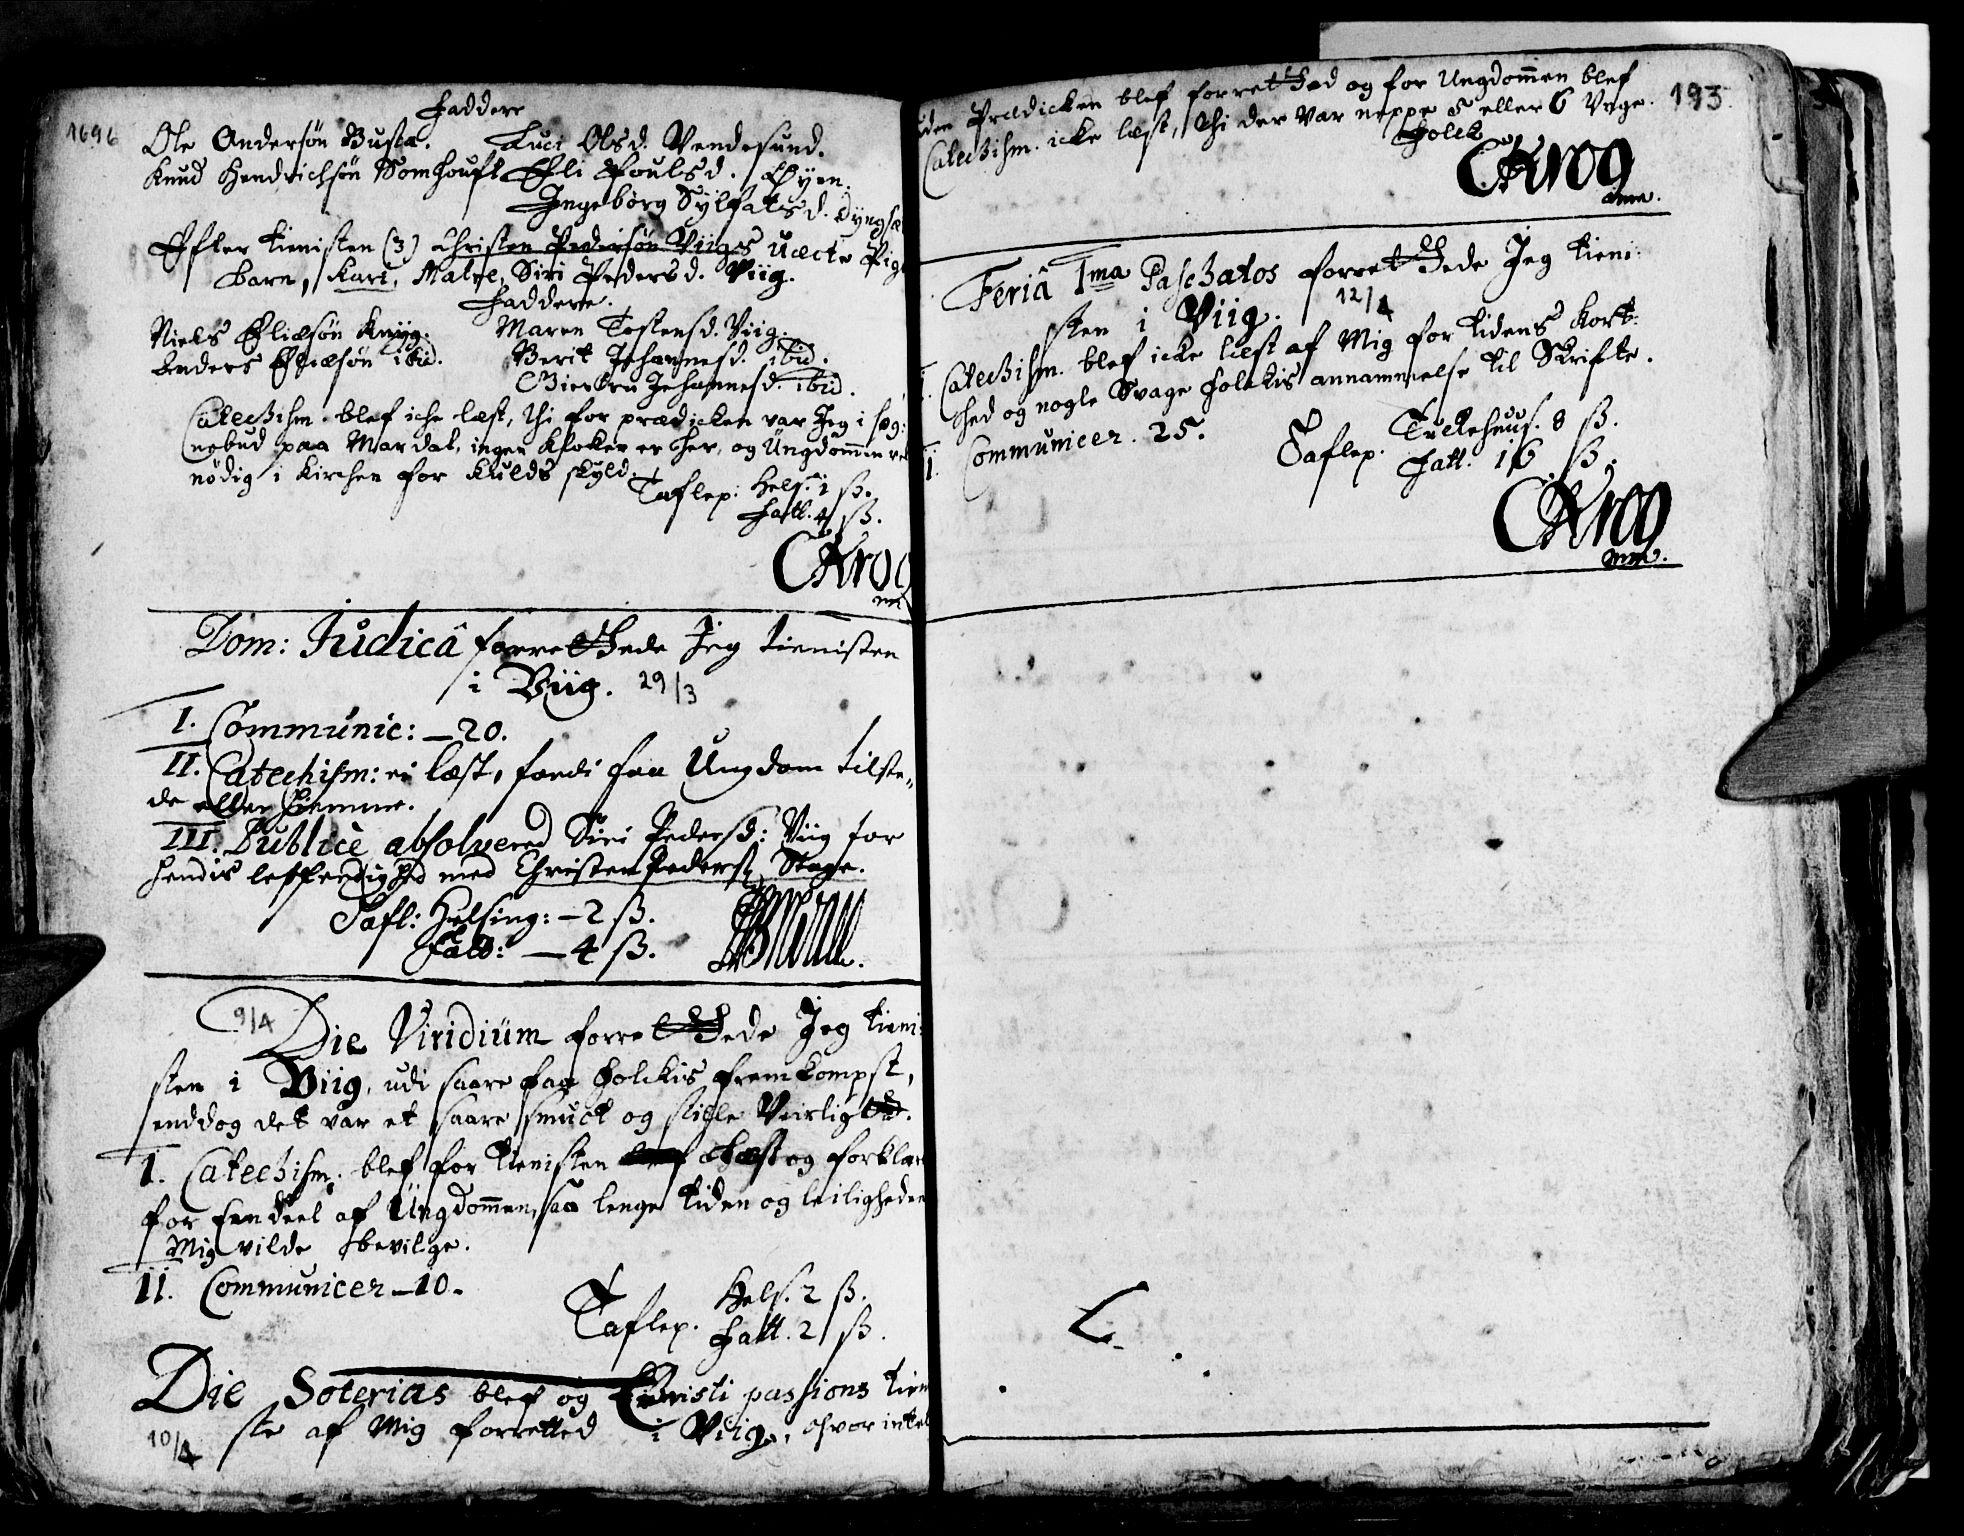 1696
Faddere
Ole Andersøn Busta. Luci Olsd. Vendesund.
Knud Hendrichsøn Somhouft Ehli Poulsd. Øyen.
Ingebørg Sylfatsd.
Efter tienisten (3) Christen Pedersøn Viigs Uæcte Pige
barn, Kari, Matre, Siri Pedersd. Viig.
Faddere.
Niels Eliæsøn Knyg. Maren Tostensd. Viig.
Anders Eliæsøn ibid. Berit Johannesd. ibid.
Johannesd. ibid.
Catechism. blef iche læst, thi for prædicken var Jeg i sog:
nebud paa Mardal, ingen Klocker er her, og Ungdommen
nödig i Kirchen for Kulds skyld.
Taflep: Hels. 1 ß.
Fatt. 4 ß.
CKrog
Dom: Judica forrettede Jeg tienisten
i Viig. 29/3
I. Communic: – 20.
II. Catechism: ei læst, fordi faa Ungdom tilste„
de eller hiemme.
III. Publicè absolvered Siri Pedersd: Viig for
hendis letferdighed med Christen Peders: Stage.
Tafl: Helsing: – 2 ß.
Fatt: – 4 ß.
9/4
Die Viridium forrettede Jeg tieni:
sten i Viig, udi saare faa Folckis fremkompst,
enddog det var et saare smuck og stille Veirligt.
I. Catechism. blef for tienisten læst og forklaret
for Eendeel af Ungdommen, saa lenge tiden og leiligheden
Mig vilde bevilge.
II. Communicer – 10.
Taflep. Hels. 2 ß.
Fatt. 2 ß.
Die Soterias blef og Christi passions tien
10/4 ste af Mig forretted i Viig, hvor intet
193
uden Prædicken blef forretted og for Ungdommen blef
Catechism. icke læst, thi der var neppe 5 eller 6 Unge
Folck
CKrog
mm.
Feriâ 1ma Paschatos forrettede Jeg tieni:
sten i Viig. 12/4
I. Catechism. blef icke læst af Mig for tidens kort:
hed og nogle Svage Folckis annammelse til Skrifte.
II. Communicer. 25.
Taflep. 8 ß.
Fatt. 16 ß.
CKrog
mm.